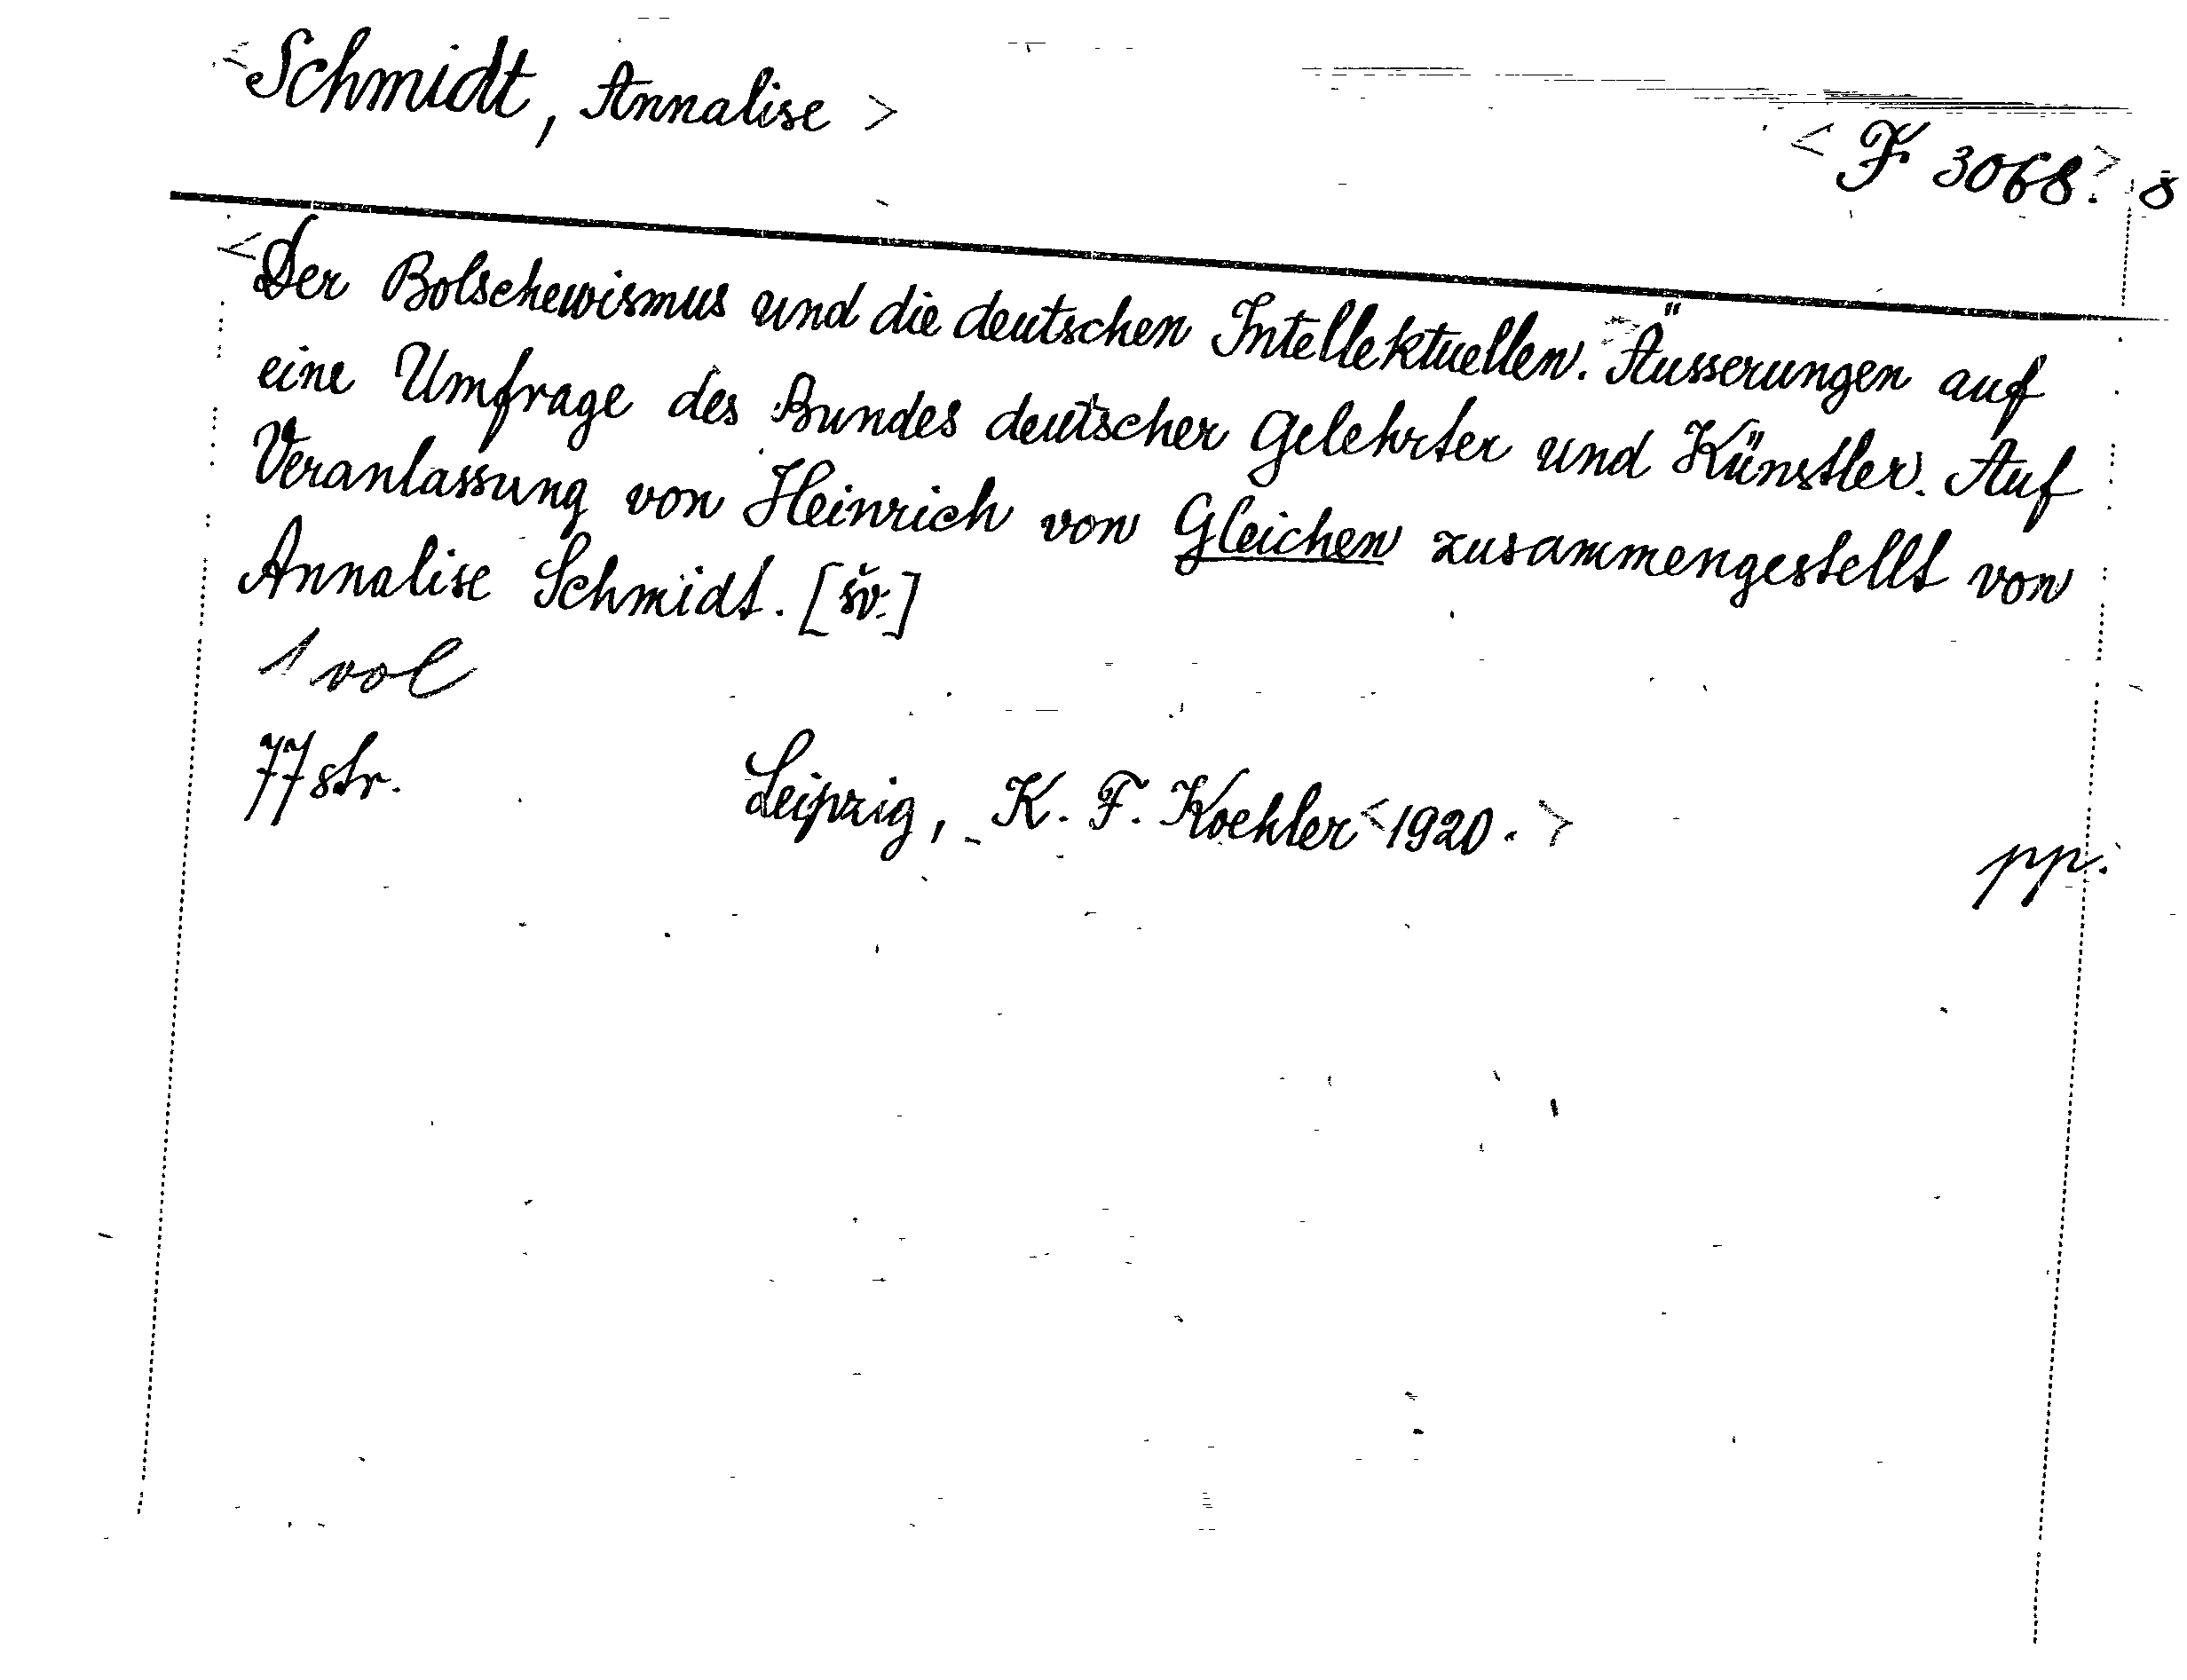 <Schmidt, Annalise>
<F 3068.> 8
<Der Bolschewismus und die deutschen Intellektuellen.> Äusserungen auf
eine Umfrage des Bundes deutscher Gelehrter und Künstler. Auf
Veranlassung von Heinrich von Gleichen zusammengestellt von
Annalise Schmidt. [šv.]
1 vol
77 str. Leipzig, K. F. Koehler <1920.>
pp.